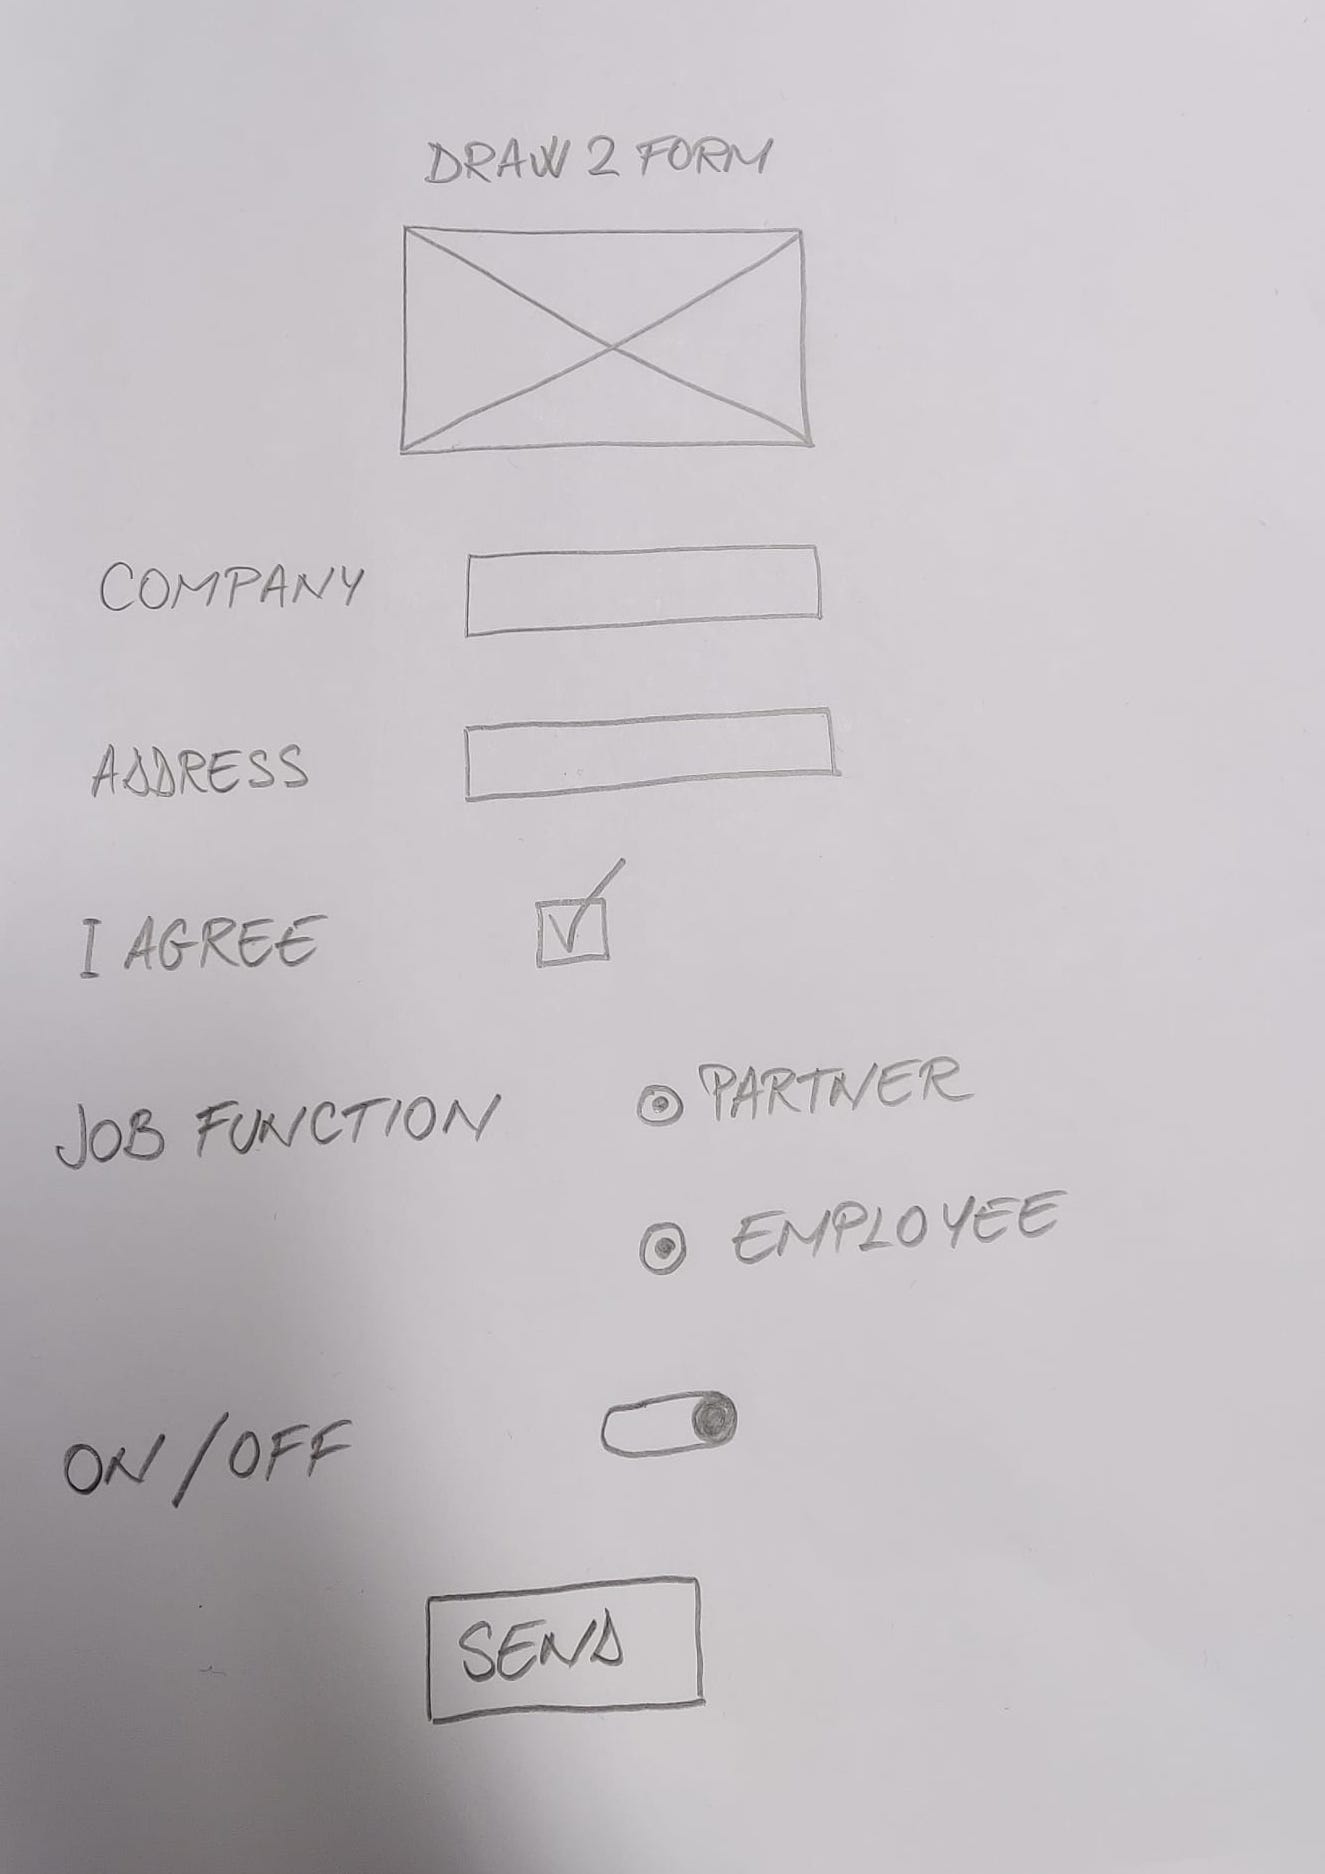 DRAW 2 FORM
COMPANY
ADDRESS
I AGREE
JOB FUNCTION
PARTNER
EMPLOYEE
ON/OFF
SEND